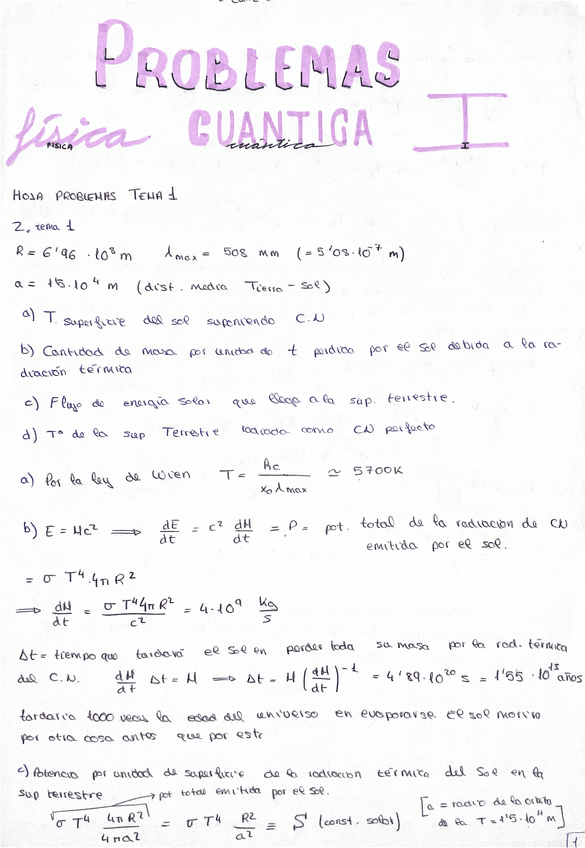 PROBLEMAS
física CUANTICA I
FISICA cuántica I
HOJA PROBLEMAS TEMA 1
2. tema 1
R = 6'96 · 10⁸ m λmax = 508 mm (= 5'08·10⁻⁷ m)
a = 15·10⁴ m (dist. media Tierra - Sol)
a) T superficie del sol suponiendo C.N
b) Cantidad de masa por unidad de t perdida por el Sol debida a la ra-
diación térmica
c) Flujo de energía solar que llega a la sup. terrestre.
d) Tª de la sup Terrestre como CN perfecto
a) Por la ley de Wien T = Ac / x₀ λmax ≃ 5700K
b) E = Mc² ⟹ dE/dt = c² dM/dt = P = pot. total de la radiación de CN
emitida por el sol.
= σ T⁴·4π R²
⟹ dM/dt = σ T⁴ 4π R² / c² = 4·10⁹ kg/s
Δt = tiempo que tardará el Sol en perder toda su masa por la rad. térmica
del C.N. dM/dt Δt = M ⟹ Δt = M (dM/dt)⁻¹ = 4'89·10²⁰ s = 1'55 · 10¹³ años
tardaria 1000 veces la edad del universo en evaporarse el sol morira
por otra cosa antes que por esto
c) Potencia por unidad de superficie de la radiacion térmica del Sol en la
sup terrestre → pot total emitida por el sol.
σ T⁴ 4π R² / 4π a² = σ T⁴ R²/a² ≡ S (const. solar) [a = radio de la orbita
de la T = 1'5·10¹¹ m]
1